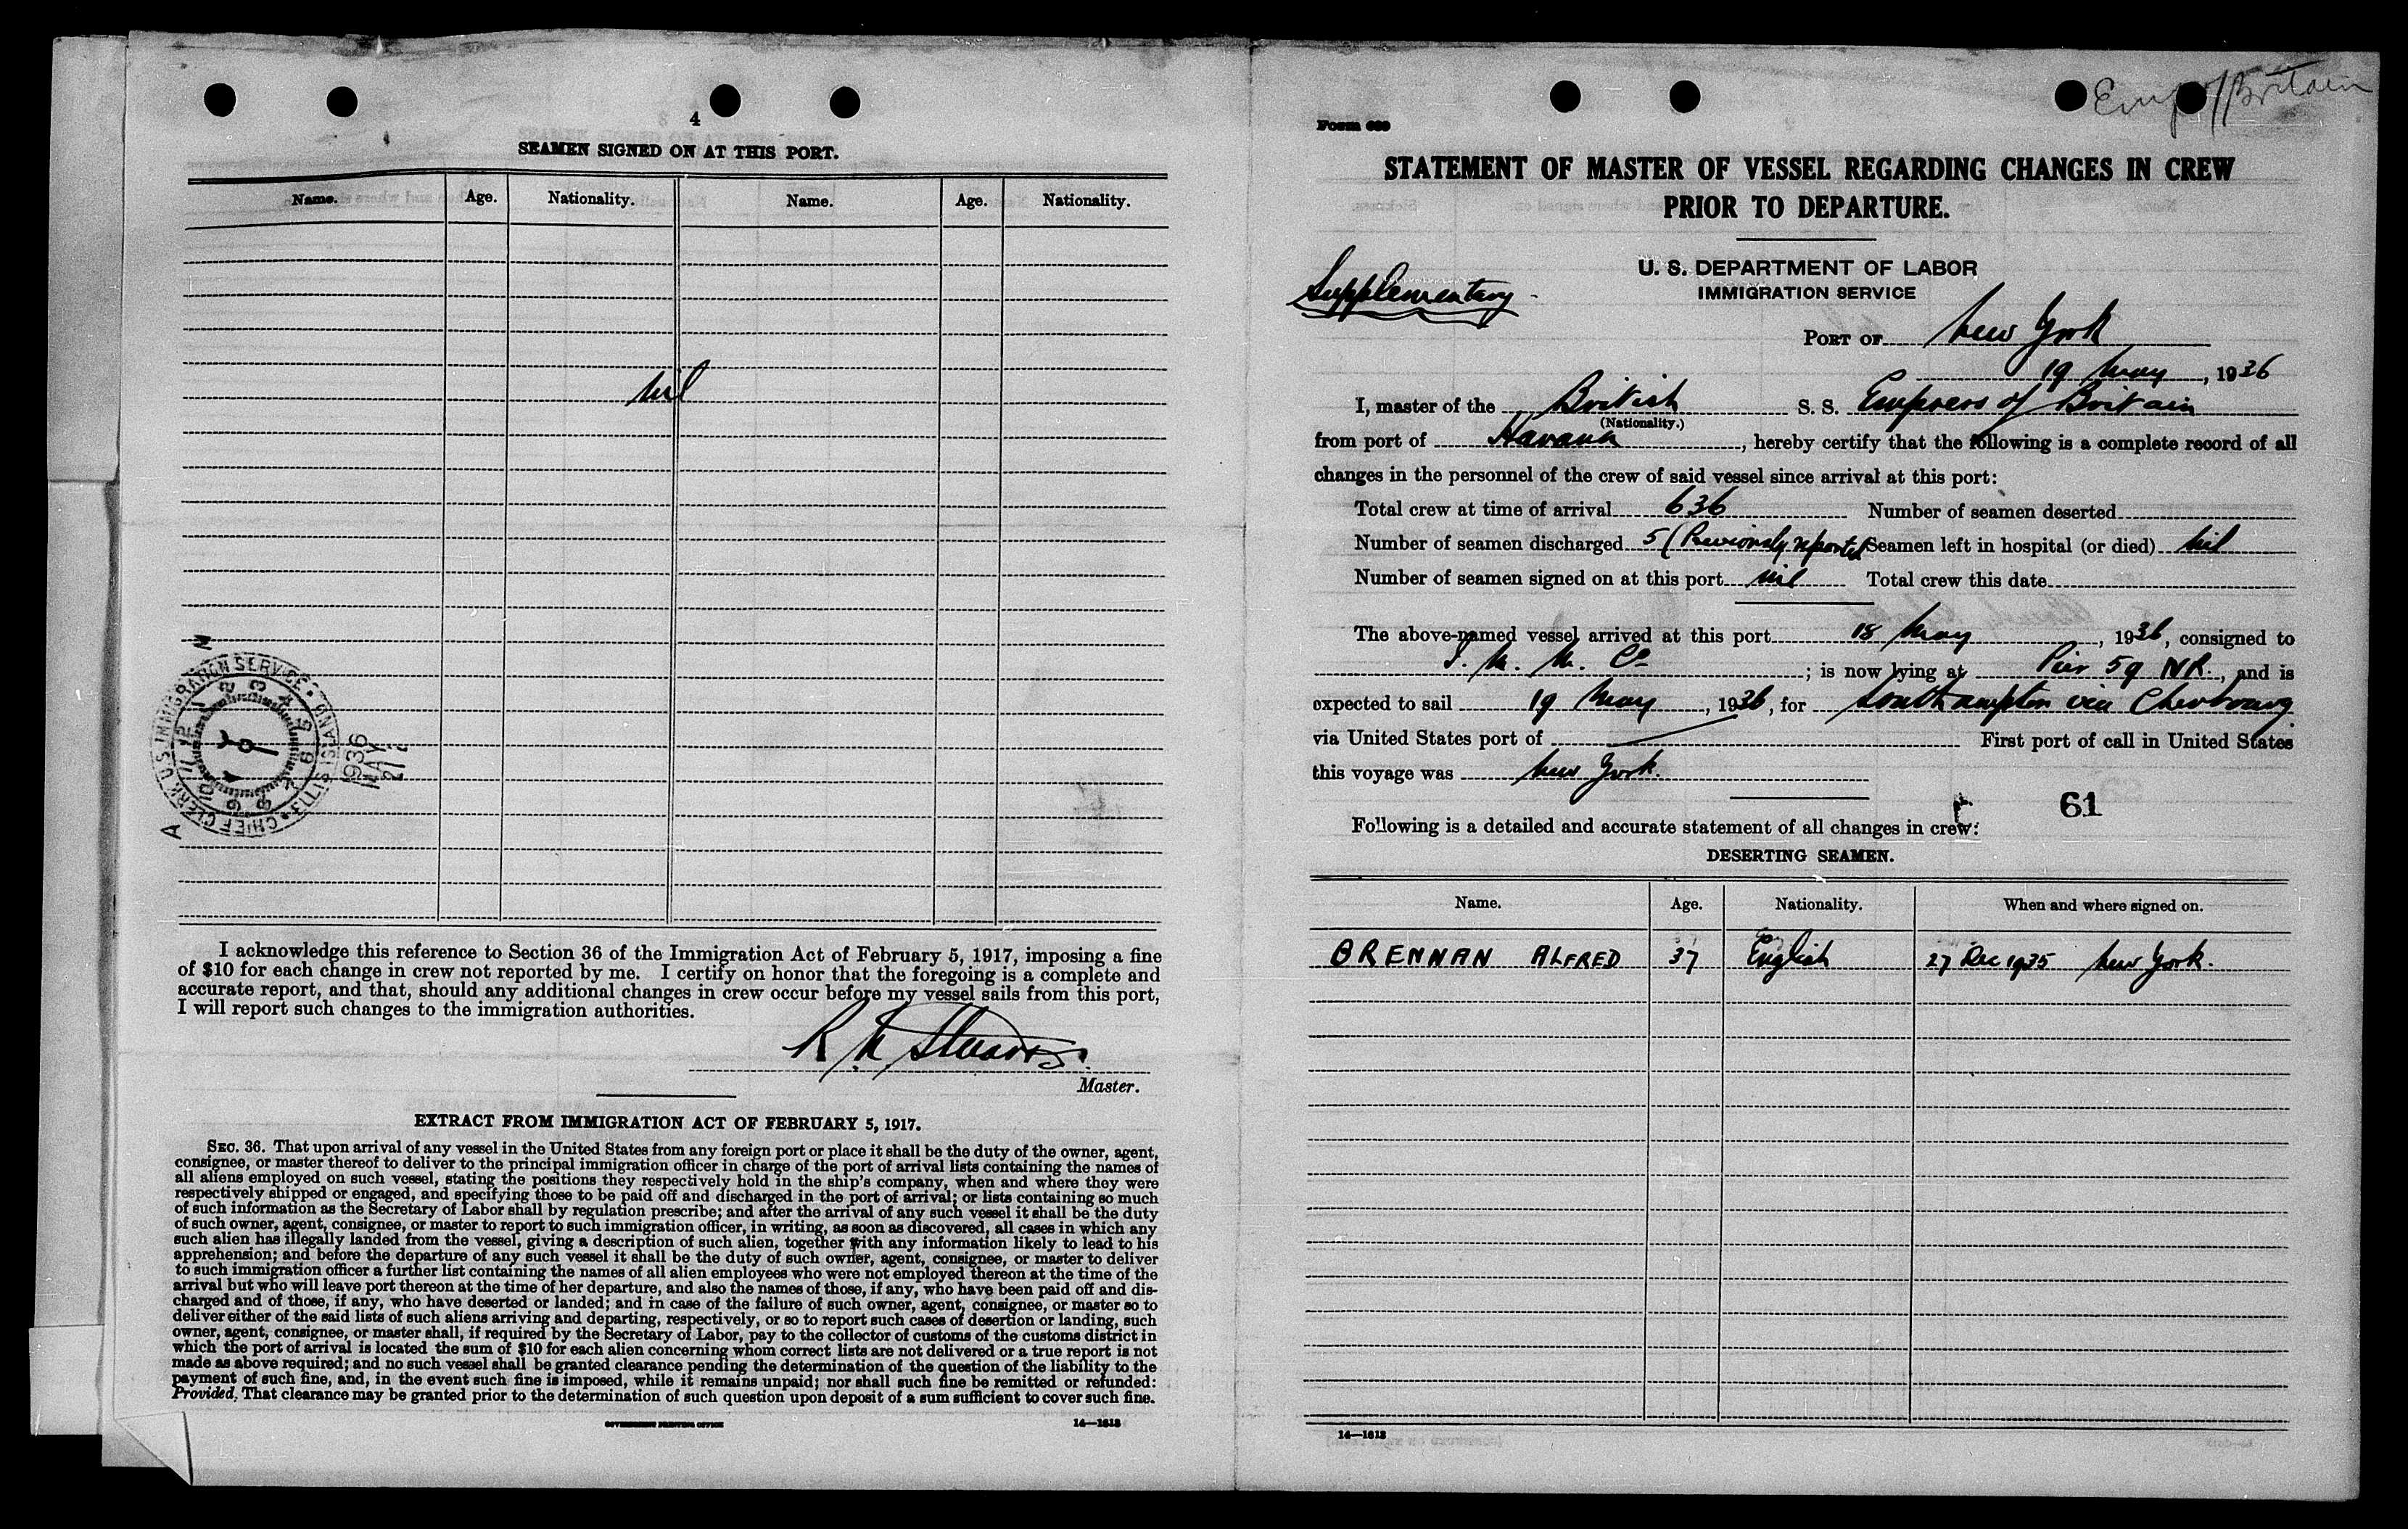 4
SEAMEN SIGNED ON AT THIS PORT.
Name. Age. Nationality. Name. Age. Nationality.
nil
CHIEF CLERK U.S. IMMIGRATION SERVICE ELLIS ISLAND
1936
MAY
21
I acknowledge this reference to Section 36 of the Immigration Act of February 5, 1917, imposing a fine
of $10 for each change in crew not reported by me. I certify on honor that the foregoing is a complete and
accurate report, and that, should any additional changes in crew occur before my vessel sails from this port,
I will report such changes to the immigration authorities.
Master.
EXTRACT FROM IMMIGRATION ACT OF FEBRUARY 5, 1917.
SEC. 36. That upon arrival of any vessel in the United States from any foreign port or place it shall be the duty of the owner, agent,
consignee, or master thereof to deliver to the principal immigration officer in charge of the port of arrival lists containing the names of
all aliens employed on such vessel, stating the positions they respectively hold in the ship's company, when and where they were
respectively shipped or engaged, and specifying those to be paid off and discharged in the port of arrival; or lists containing so much
of such information as the Secretary of Labor shall by regulation prescribe; and after the arrival of any such vessel it shall be the duty
of such owner, agent, consignee, or master to report to such immigration officer, in writing, as soon as discovered, all cases in which any
such alien has illegally landed from the vessel, giving a description of such alien, together with any information likely to lead to his
apprehension; and before the departure of any such vessel it shall be the duty of such owner, agent, consignee, or master to deliver
to such immigration officer a further list containing the names of all alien employees who were not employed thereon at the time of the
arrival but who will leave port thereon at the time of her departure, and also the names of those, if any, who have been paid off and dis-
charged and of those, if any, who have deserted or landed; and in case of the failure of such owner, agent, consignee, or master so to
deliver either of the said lists of such aliens arriving and departing, respectively, or so to report such cases of desertion or landing, such
owner, agent, consignee, or master shall, if required by the Secretary of Labor, pay to the collector of customs of the customs district in
which the port of arrival is located the sum of $10 for each alien concerning whom correct lists are not delivered or a true report is not
made as above required; and no such vessel shall be granted clearance pending the determination of the question of the liability to the
payment of such fine, and, in the event such fine is imposed, while it remains unpaid; nor shall such fine be remitted or refunded:
Provided, That clearance may be granted prior to the determination of such question upon deposit of a sum sufficient to cover such fine.
GOVERNMENT PRINTING OFFICE 14—1613
Emp of Britain
Form 689
STATEMENT OF MASTER OF VESSEL REGARDING CHANGES IN CREW
PRIOR TO DEPARTURE.
U. S. DEPARTMENT OF LABOR
IMMIGRATION SERVICE
Supplementary
PORT OF New York
19 May, 1936
I, master of the British S. S. Empress of Britain
(Nationality.)
from port of Havana, hereby certify that the following is a complete record of all
changes in the personnel of the crew of said vessel since arrival at this port:
Total crew at time of arrival 636 Number of seamen deserted
Number of seamen discharged 5 (Previously reported Seamen left in hospital (or died) nil
Number of seamen signed on at this port nil Total crew this date
The above-named vessel arrived at this port 18 May, 1936, consigned to
I. M. M. Co; is now lying at Pier 59 NR., and is
expected to sail 19 May, 1936, for Southampton via Cherbourg
via United States port of First port of call in United States
this voyage was New York.
61
Following is a detailed and accurate statement of all changes in crew:
DESERTING SEAMEN.
Name. Age. Nationality. When and where signed on.
BRENNAN ALFRED 37 English 27 Dec 1935 New York.
14—1613